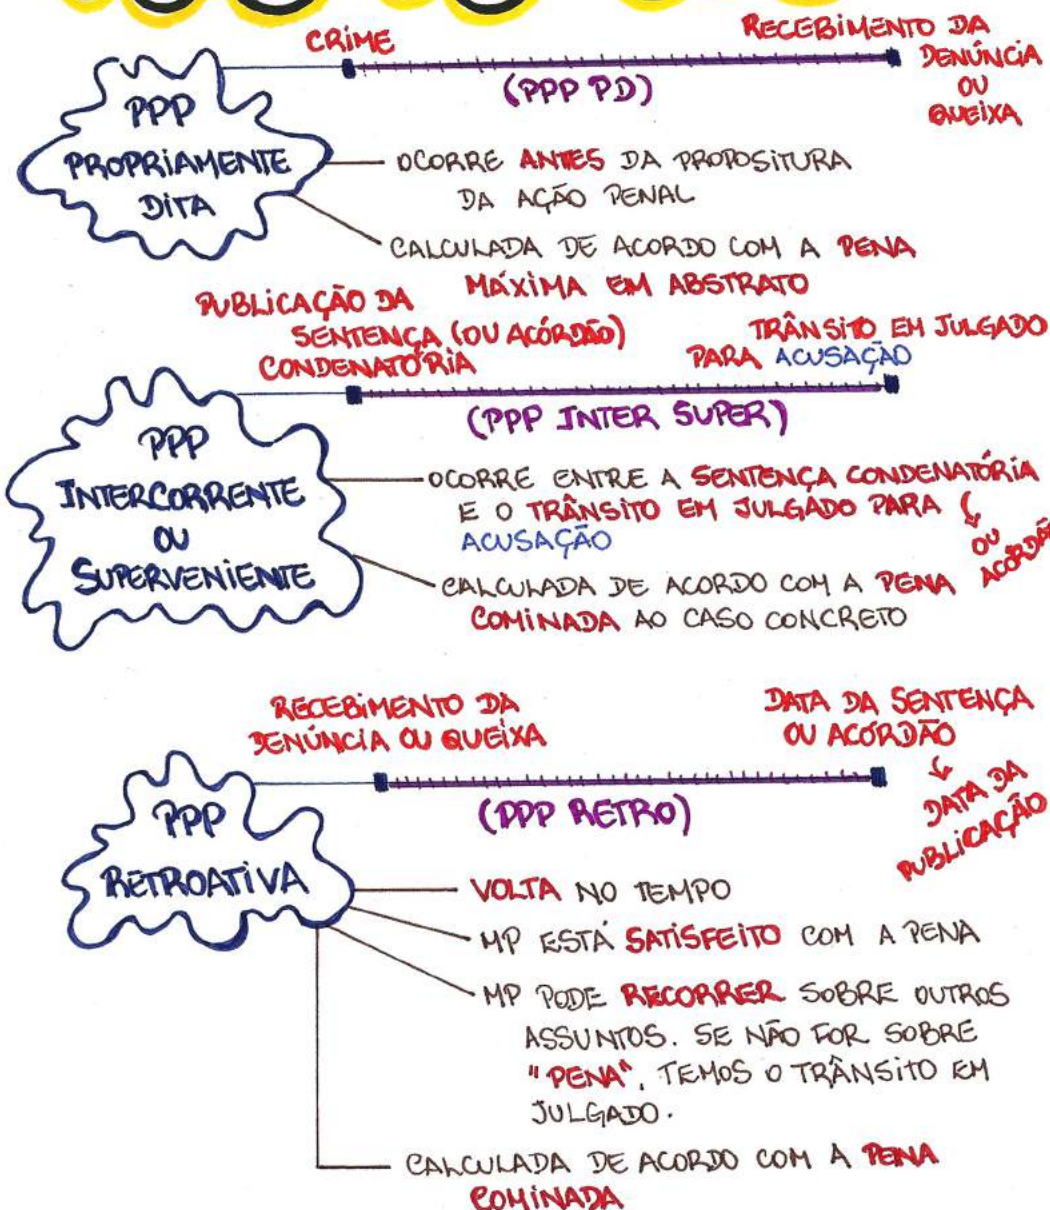 CRIME
RECEBIMENTO DA
DENÚNCIA
OU
QUEIXA
(PPP PD)
PPP
PROPRIAMENTE
DITA
OCORRE ANTES DA PROPOSITURA
DA AÇÃO PENAL
CALCULADA DE ACORDO COM A PENA
MÁXIMA EM ABSTRATO
PUBLICAÇÃO DA
SENTENÇA (OU ACÓRDÃO)
CONDENATÓRIA
TRÂNSITO EM JULGADO
PARA ACUSAÇÃO
(PPP INTER SUPER)
PPP
INTERCORRENTE
OU
SUPERVENIENTE
OCORRE ENTRE A SENTENÇA CONDENATÓRIA
E O TRÂNSITO EM JULGADO PARA
ACUSAÇÃO
OU
ACÓRDÃO
CALCULADA DE ACORDO COM A PENA
COMINADA AO CASO CONCRETO
RECEBIMENTO DA
DENÚNCIA OU QUEIXA
DATA DA SENTENÇA
OU ACÓRDÃO
DATA DA
PUBLICAÇÃO
(PPP RETRO)
PPP
RETROATIVA
VOLTA NO TEMPO
MP ESTÁ SATISFEITO COM A PENA
MP PODE RECORRER SOBRE OUTROS
ASSUNTOS. SE NÃO FOR SOBRE
"PENA", TEMOS O TRÂNSITO EM
JULGADO.
CALCULADA DE ACORDO COM A PENA
COMINADA